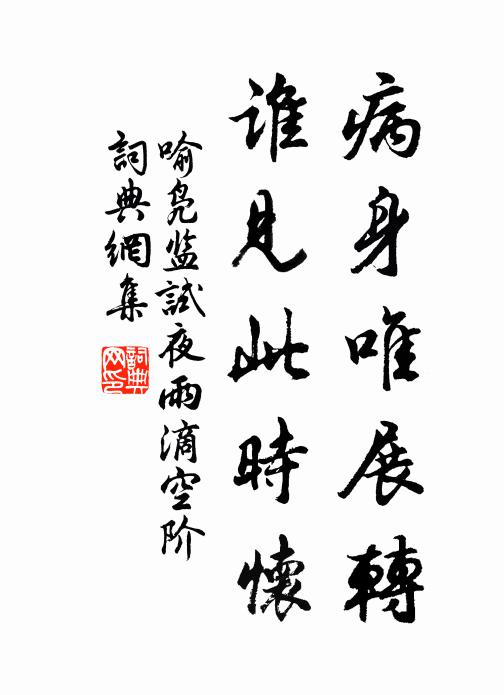 病身唯展轉
誰見此時懷
喻凫监試夜雨滴空阶
詞典網集
詞典網印